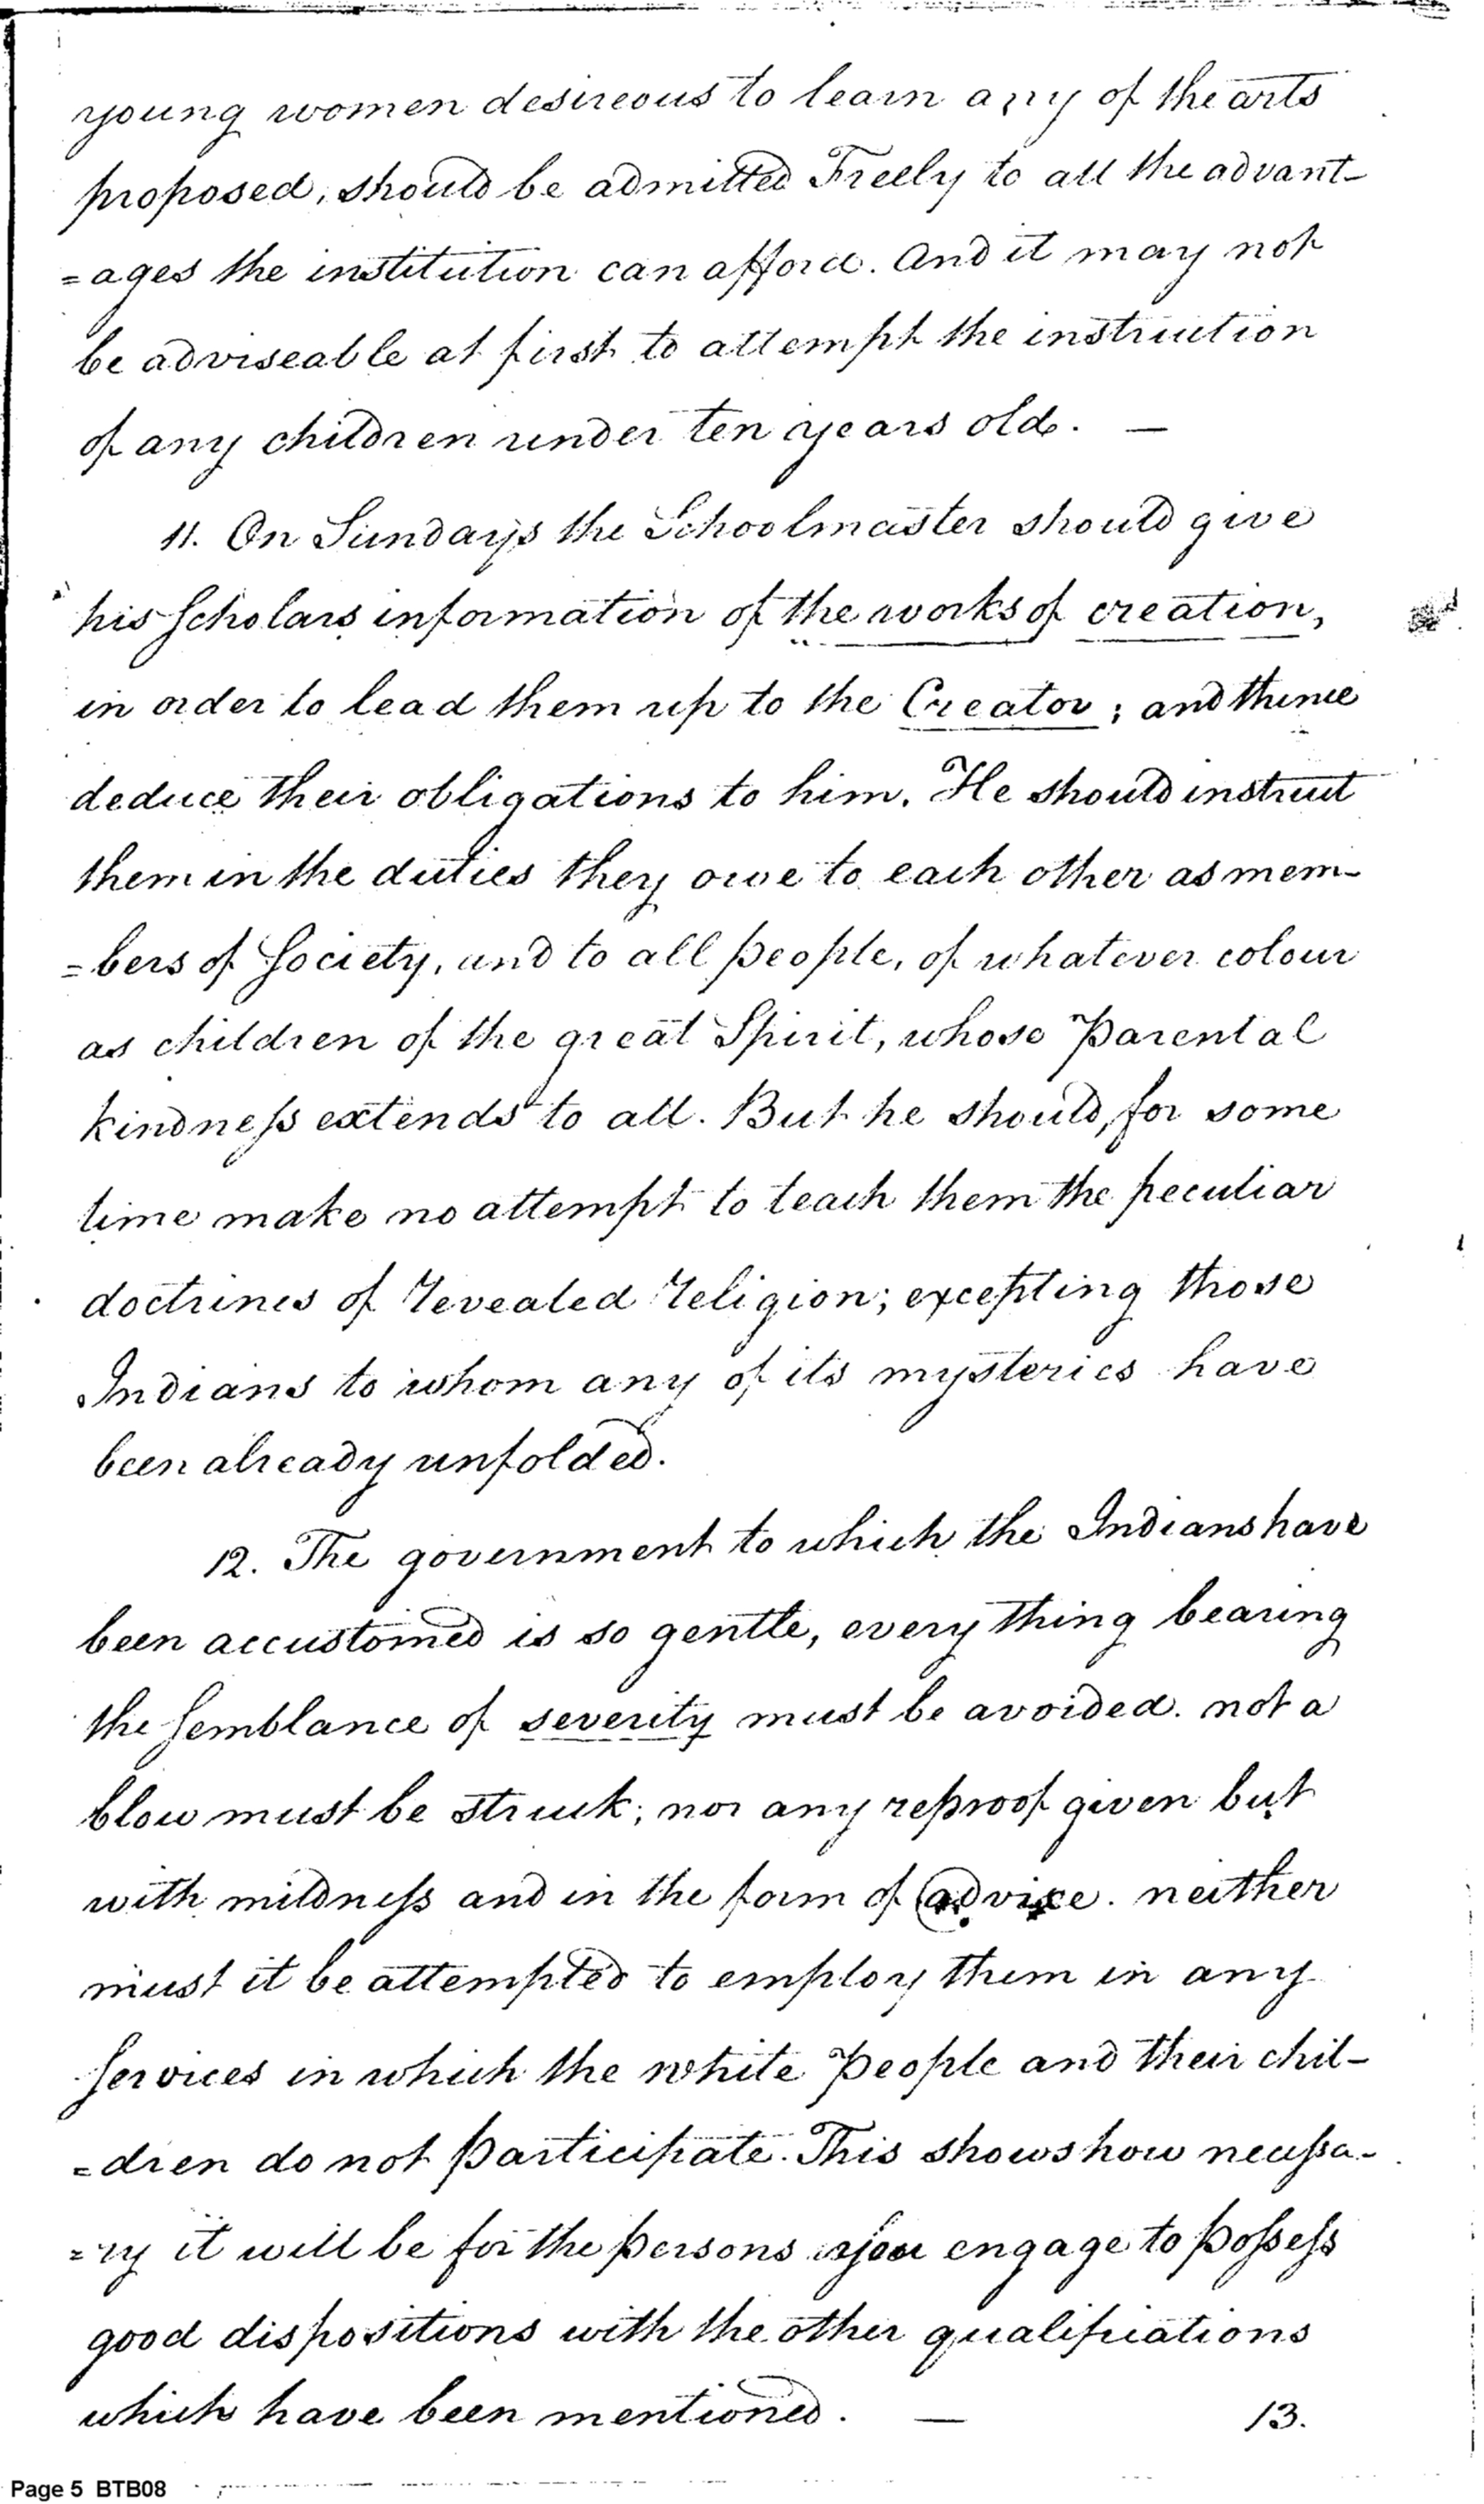 young women desireous to learn any of the arts
proposed, should be admitted Freely to all the advant-
=ages the institution can afford. And it may not
be adviseable at first to attempt the instruction
of any children under ten years old. —
11. On Sundays the Schoolmaster should give
his Scholars information of the works of creation,
in order to lead them up to the Creator; and thence
deduce their obligations to him. He should instruct
them in the duties they owe to each other as mem-
=bers of Society, and to all people, of whatever colour
as children of the great Spirit, whose Parental
kindness extends to all. But he should, for some
time make no attempt to teach them the peculiar
doctrines of revealed religion; excepting those
Indians to whom any of its mysteries have
been already unfolded.
12. The government to which the Indians have
been accustomed is so gentle, every thing bearing
the Semblance of severity must be avoided. not a
blow must be struck; nor any reproof given but
with mildness and in the form of advice. neither
must it be attempted to employ them in any
Services in which the white People and their chil-
=dren do not participate. This shows how necessa-
=ry it will be for the persons you engage to possess
good dispositions with the other qualifications
which have been mentioned. —
13.
Page 5 BTB08